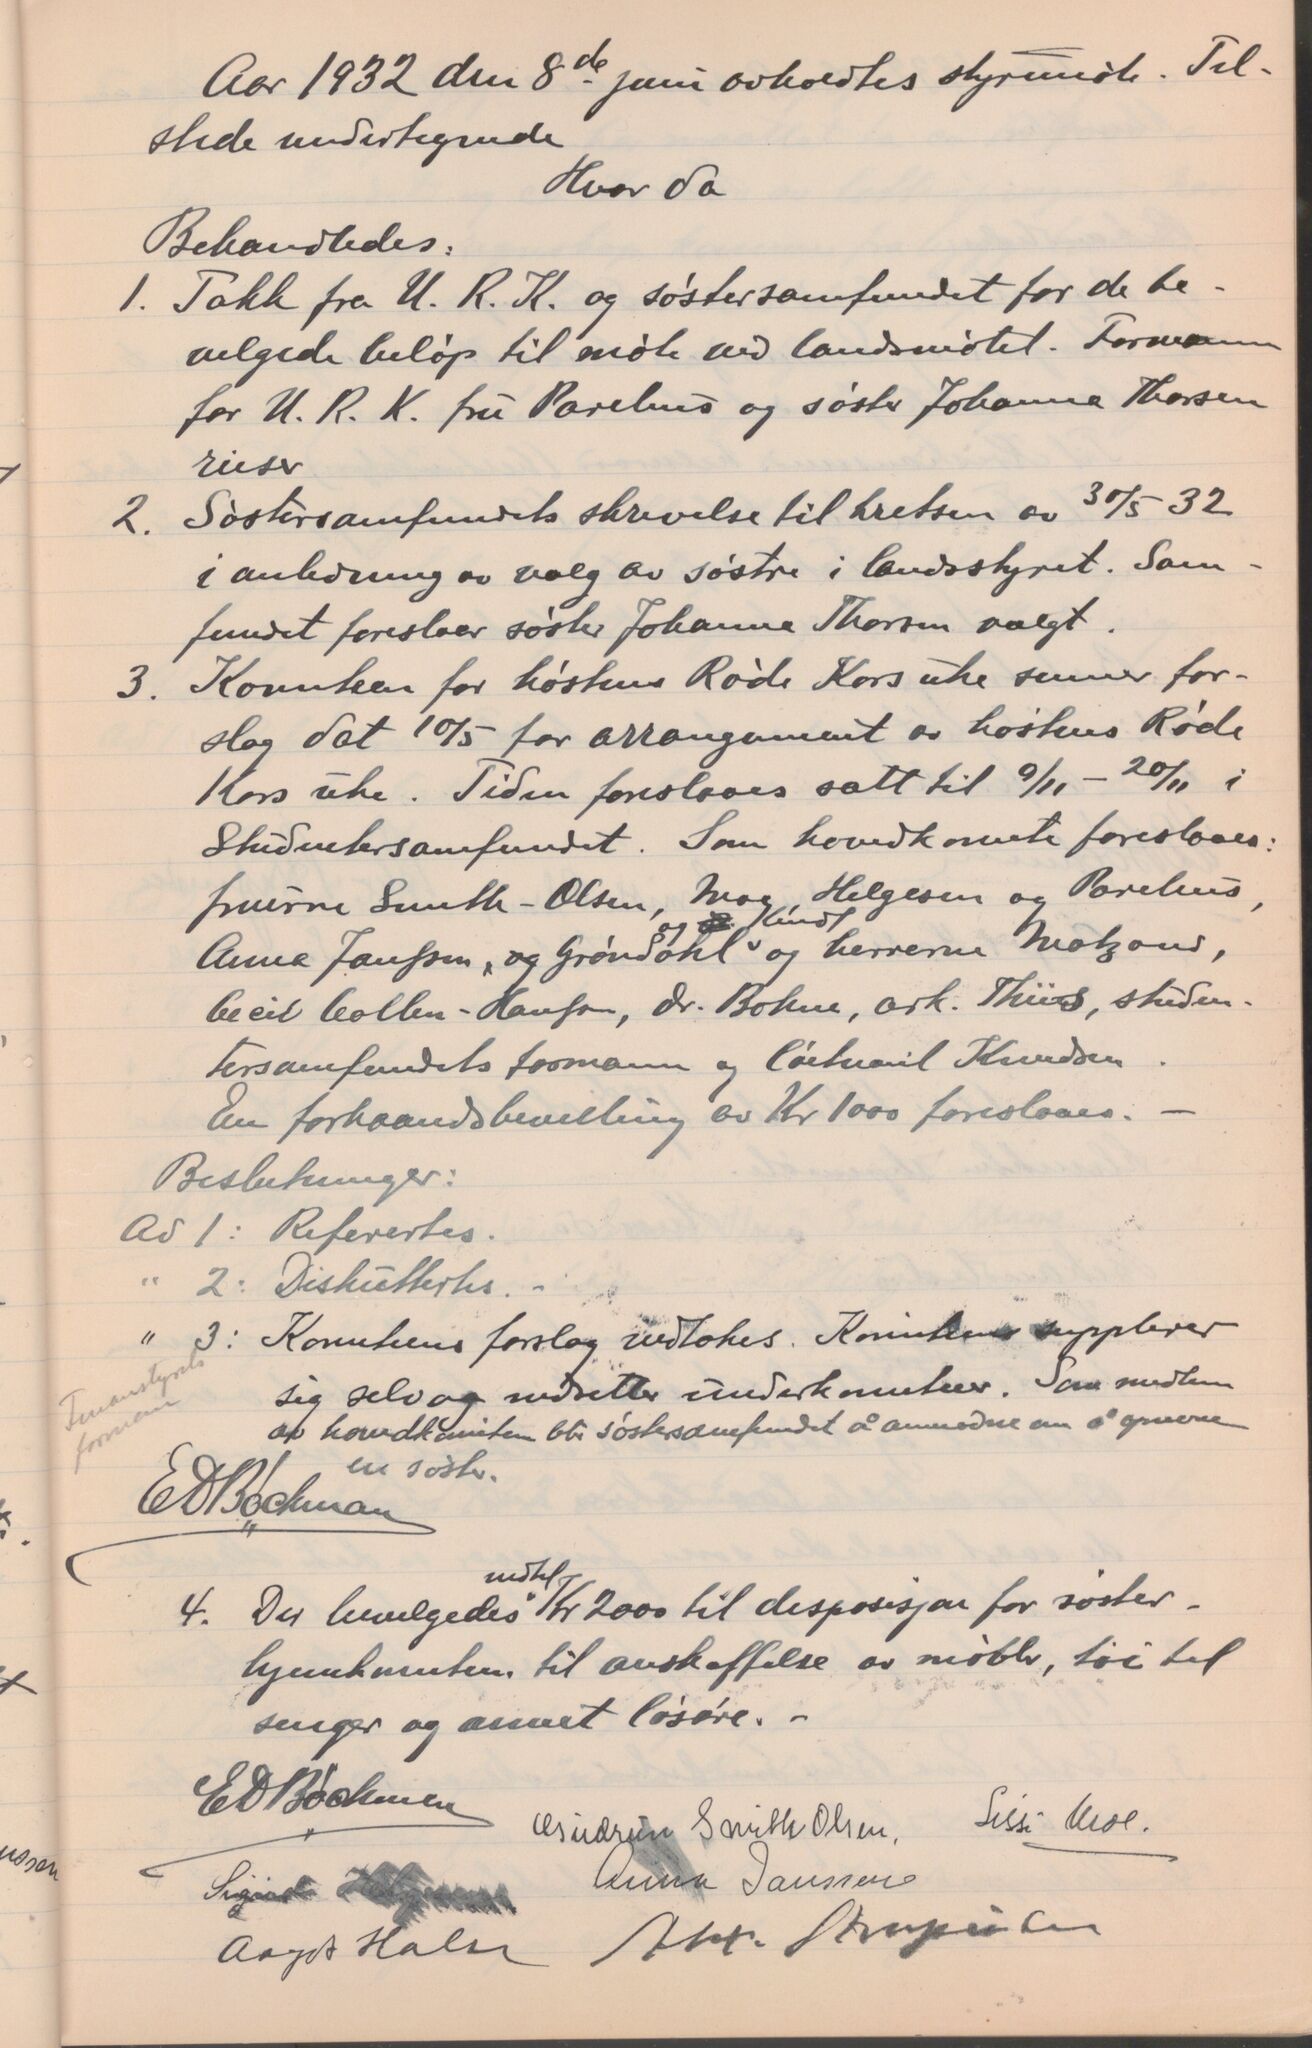 Aar 1932 den 8de juni avholdtes styremøte. Til-
stede undertegnede
Hvor da
Behandledes:
1. Takk fra U. R. K. og søstersamfundet for de be-
vilgede beløp til møte ved landsmøtet. Formann
for U. R. K. frü Parelius og søster Johanne Thorsen
reiser
2. Søstersamfundets skrivelse til kretsen av 30/5 32
i anledning av valg av søstre i landsstyret. Sam-
fundet foreslaar søster Johanne Thorsen valgt.
3. Komiteen for høstens Røde Kors uke sender for-
slag dat 10/5 for arrangement av høstens Røde
Kors uke. Tiden foreslaaes satt til 9/11 - 20/11 i
Studentersamfundet. Som hovedkomite foreslaaes:
fruerne Smith-Olsen, Moe, Helgesen og Parelius,
og Kindt
Anna Janssen, og Grøndahl og herrerne Matzow,
Cecil Collen-Hansen, dr. Bohne, ark. Thiis, studen-
tersamfundets formann og løitnant Knudsen.
En forhaandsbevilling av Kr 1000 foreslaaes. -
Beslutninger:
Ad 1: Refertes.
" 2: Diskutertes. -
" 3: Komiteens forslag vedtokes. Komiteens supplerer
sig selv og nedsetter underkomiteer. Som medlem
av hovedkomiteen blir søstersamfundet å anmodne om å opnevne
en søster.
Finansstyrets
formann
E D Bøckman
nedtil
4. Der bevilgedes Kr 2000 til disposisjon for søster-
hjemkomiteen til anskaffelse av møbler, tøi til
senger og annet løsøre. -
E D Bøckman
Gudrun Smith Olsen. Sissi Moe.
Sigrid Helgesen Anna Janssen
Aagot Holm